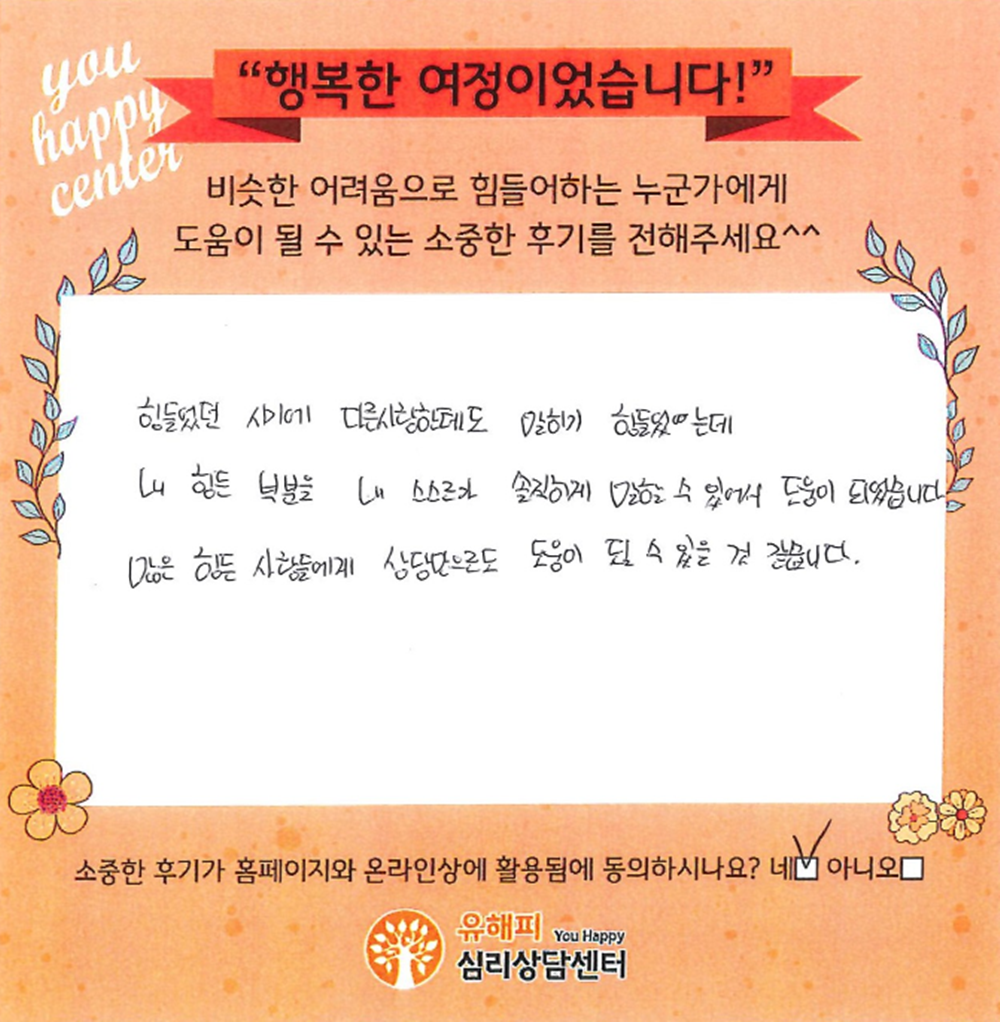 you
happy
center
“행복한 여정이었습니다!”
비슷한 어려움으로 힘들어하는 누군가에게
도움이 될 수 있는 소중한 후기를 전해주세요^^
힘들었던 시기에 다른사람한테도 말하기 힘들었는데
내 힘든 부분을 내 스스로가 솔직하게 말할 수 있어서 도움이 되었습니다
많은 힘든 사람들에게 상담만으로도 도움이 될 수 있을 것 같습니다.
소중한 후기가 홈페이지와 온라인상에 활용됨에 동의하시나요? 네 아니오
유해피 You Happy
심리상담센터